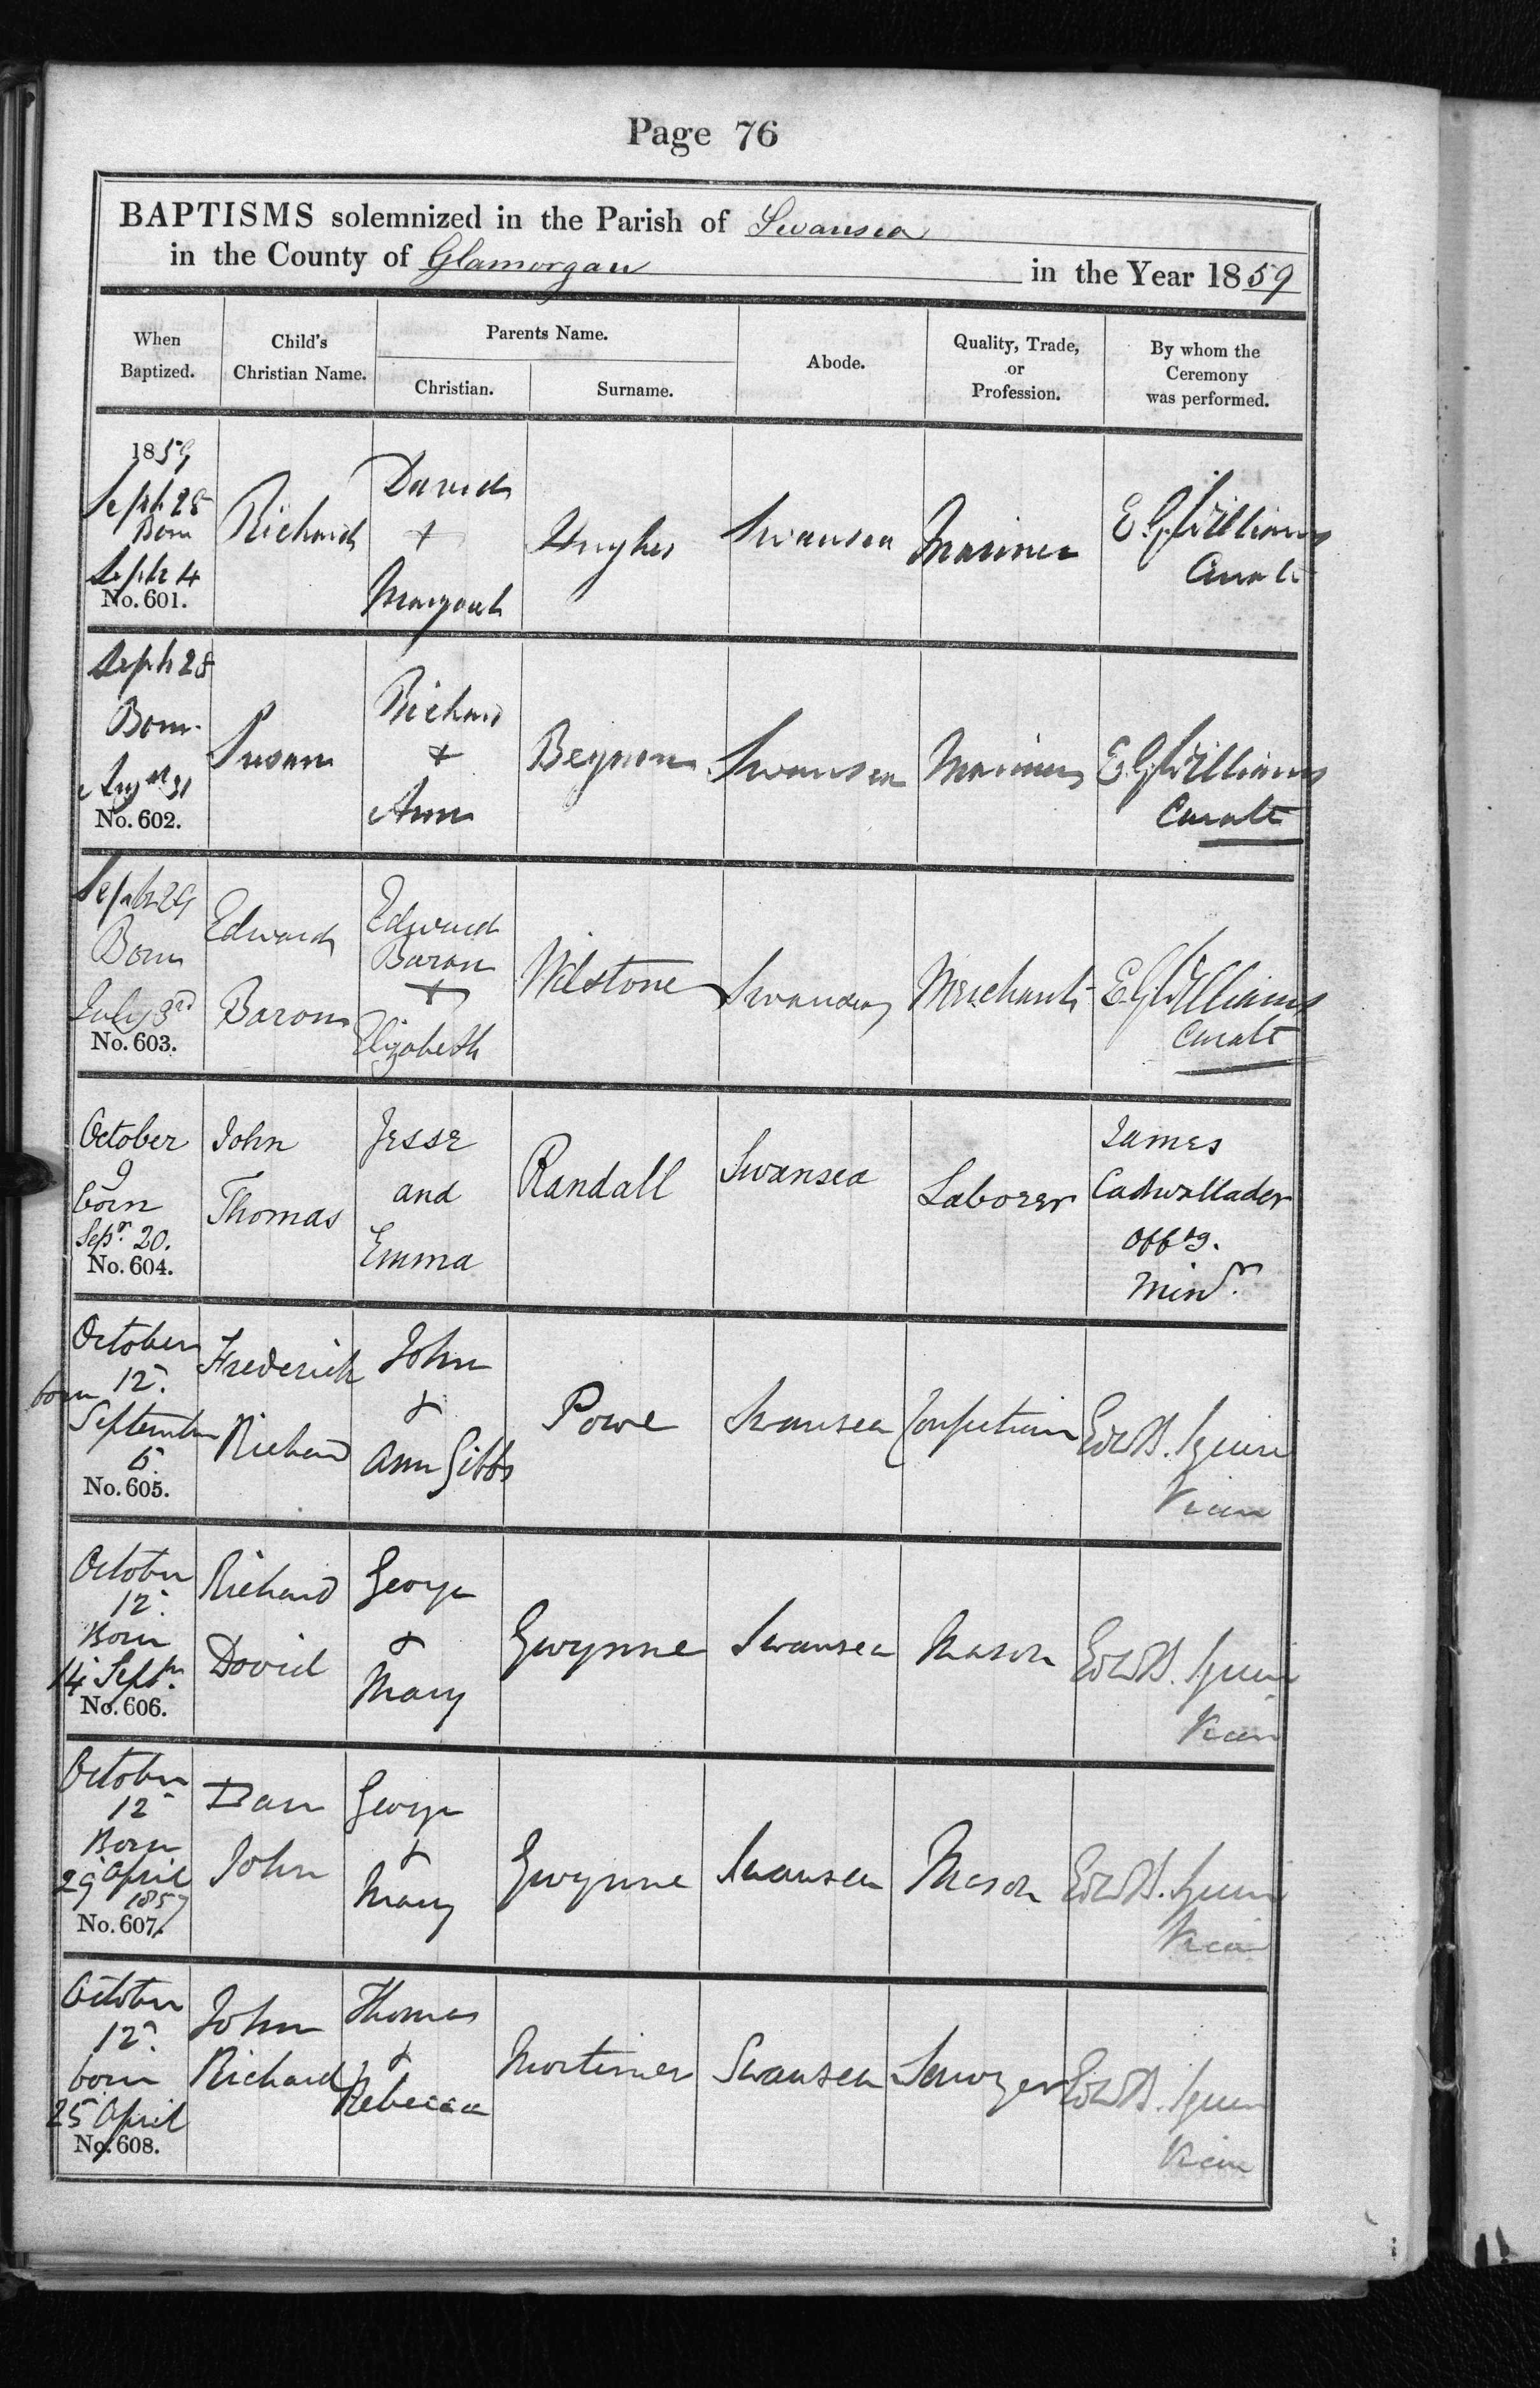 Page 76
BAPTISMS solemnized in the Parish of Swansea
in the County of Glamorgan in the Year 1859
When Baptized.
Child's Christian Name.
Parents Name.
Christian.
Surname.
Abode.
Quality, Trade, or Profession.
By whom the Ceremony was performed.
1859
Sept 25
Born
Sept 4
No. 601.
Richard
David
+
Margaret
Hughes
Swansea
Mariner
E. G. Williams
Curate
Sept 28
Born
Augst 31
No. 602.
Susan
Richard
+
Ann
Beynon
Swansea
Mariner
E G Williams
Curate
Sept 29
Born
July 3rd
No. 603.
Edward
Baron
Edward
Baron
+
Elizabeth
Wilstone
Swansea
Merchant
E G Williams
Curate
October
9
born
Sepr. 20.
No. 604.
John
Thomas
Jesse
and
Emma
Randall
Swansea
Laborer
James
Cadwallader
Offg.
Minr.
October
born 12.
September
5.
No. 605.
Frederick
Richard
John
&
Ann Gibbs
Powe
Swansea
Confectioner
Edwd B. Squire
Vicar
October
12.
Born
14 Septr.
No. 606.
Richard
David
George
&
Mary
Gwynne
Swansea
Mason
Edwd B. Squire
Vicar
October
12
Born
29 April
1857
No. 607.
Dan
John
George
&
Mary
Gwynne
Swansea
Mason
Edwd B. Squire
Vicar
October
12.
born
25 April
No. 608.
John
Richard
Thomas
&
Rebecca
Mortimer
Swansea
Sawyer
Edwd B. Squire
Vicar